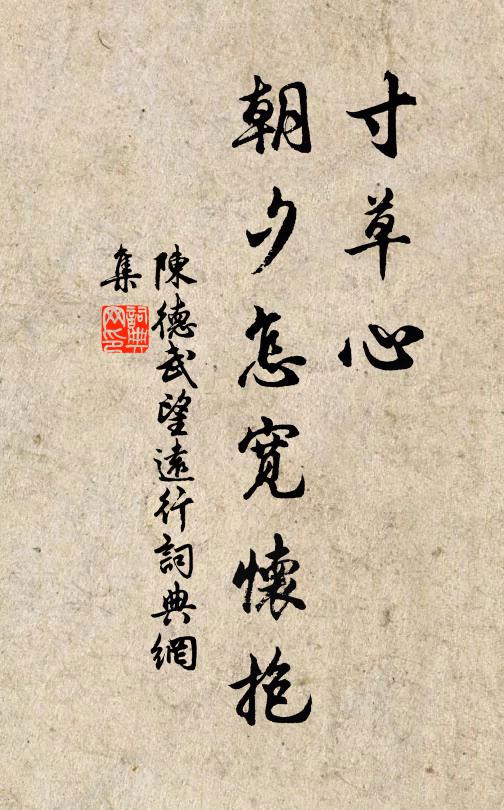 寸草心
朝夕怎寬懷抱
陳德武望遠行詞典網
集
詞典网印